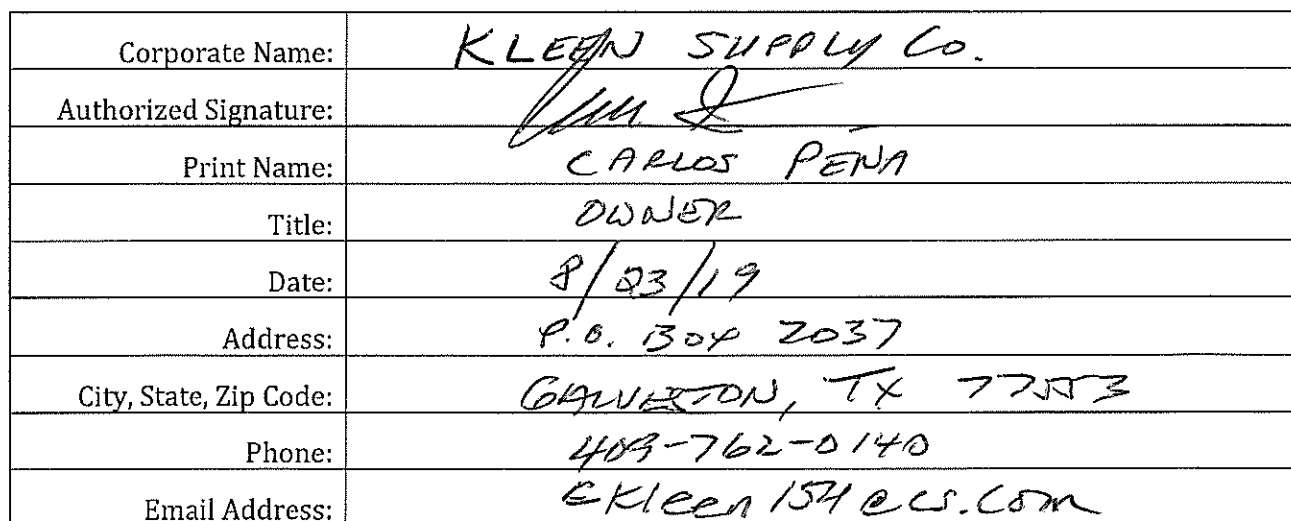 Corporate Name: KLEEN SUPPLY Co.
Authorized Signature:
Print Name: CARLOS PEÑA
Title: OWNER
Date: 8/23/19
Address: P.O. Box 2037
City, State, Zip Code: GALVESTON, TX 77553
Phone: 409-762-0140
Email Address: EKleen154@cs.com